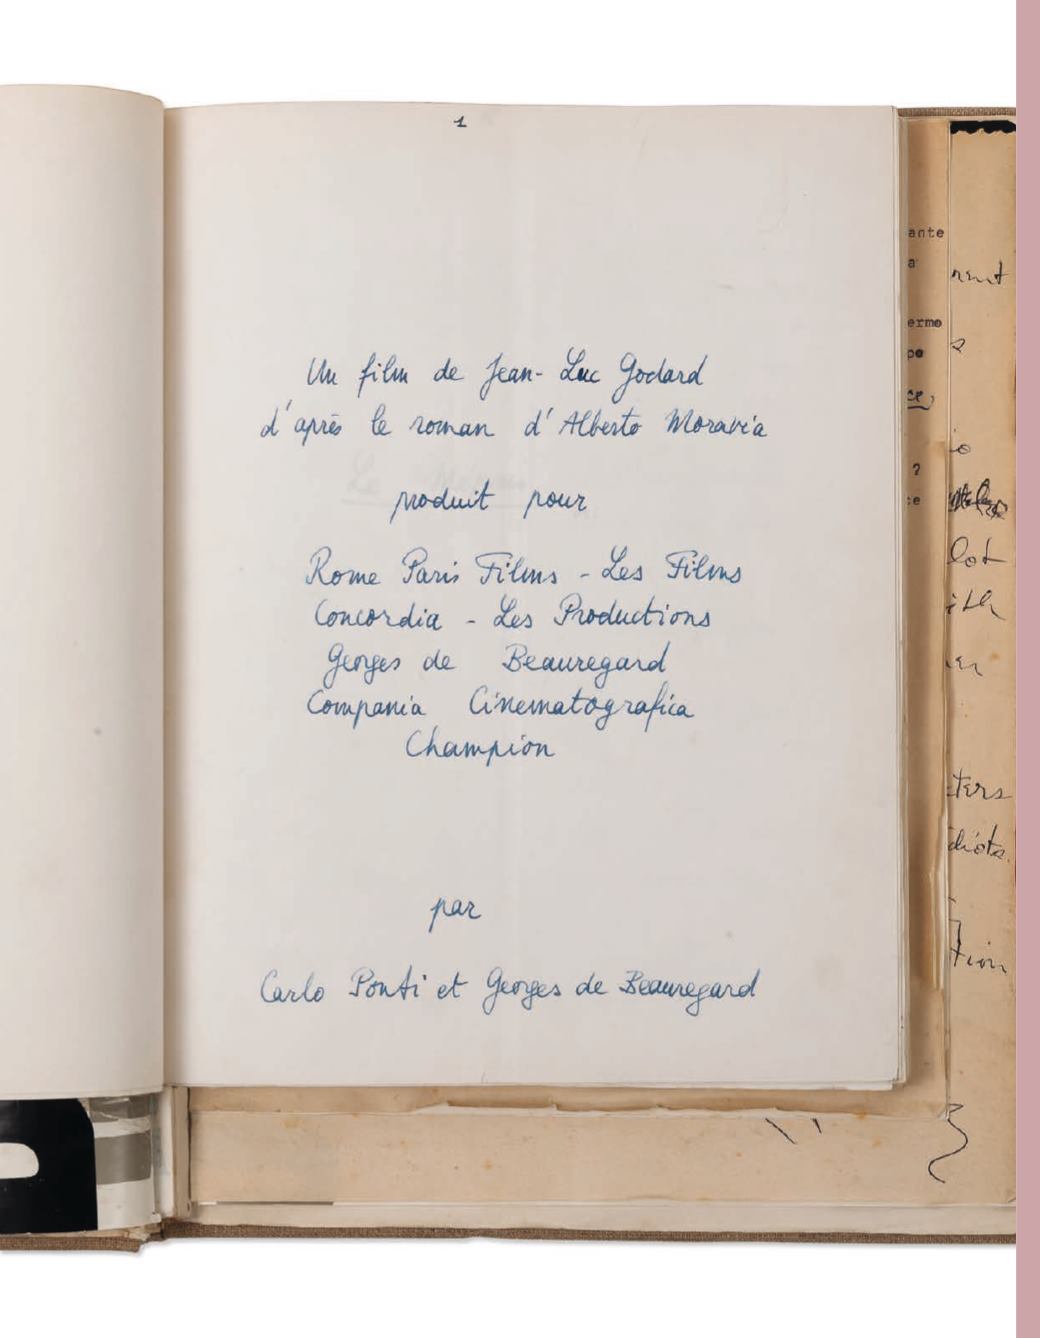 1
Un film de Jean-Luc Godard
d'après le roman d'Alberto Moravia
Le Mépris
produit pour
Rome Paris Films - Les Films
Concordia - Les Productions
Georges de Beauregard
Compania Cinematografica
Champion
par
Carlo Ponti et Georges de Beauregard
ante
a
ermo
pe
ce,
?
ce
rent
s
io
lot
ith
er
ters
diots.
tion